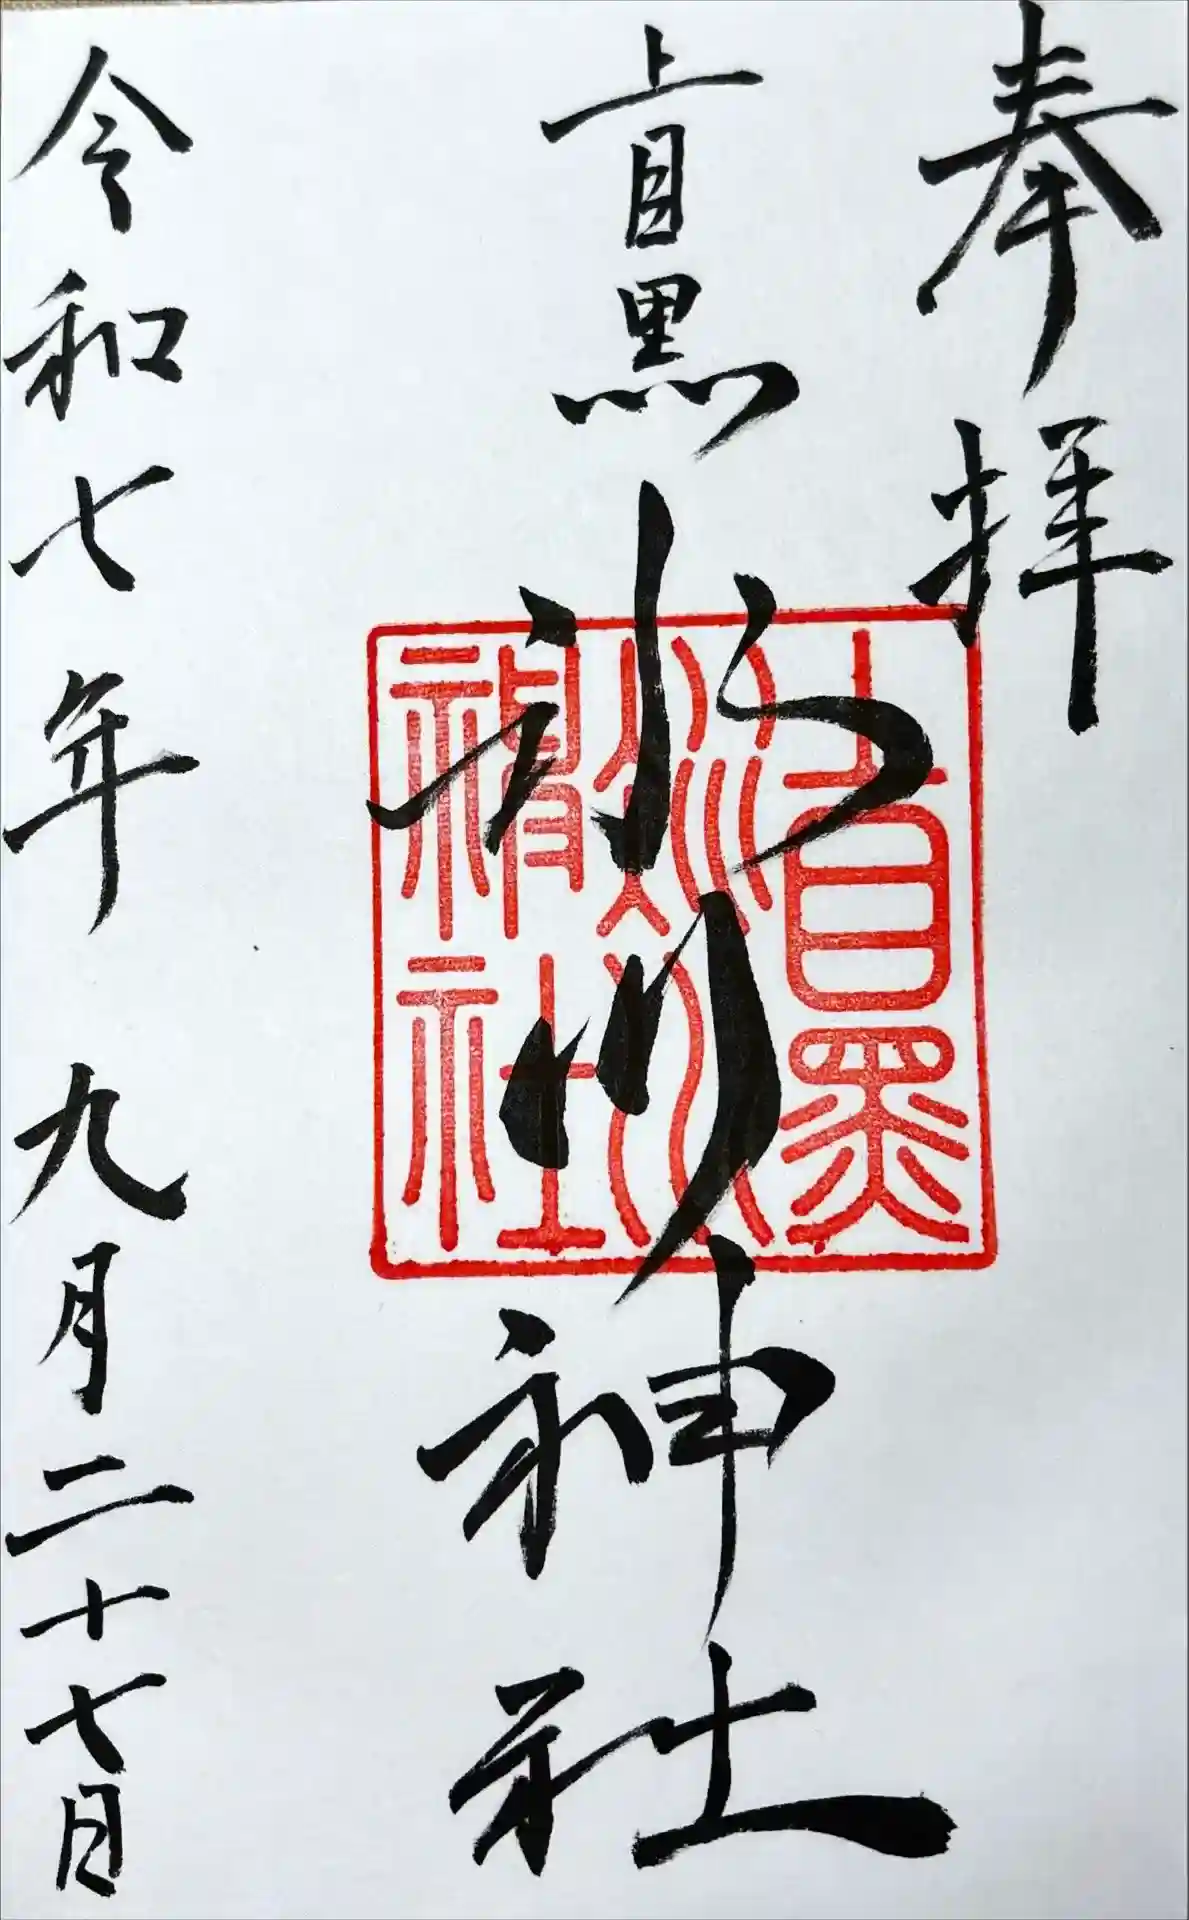 奉拝
上目黒
氷川神社
上目黒氷川神社
令和七年 九月二十七日